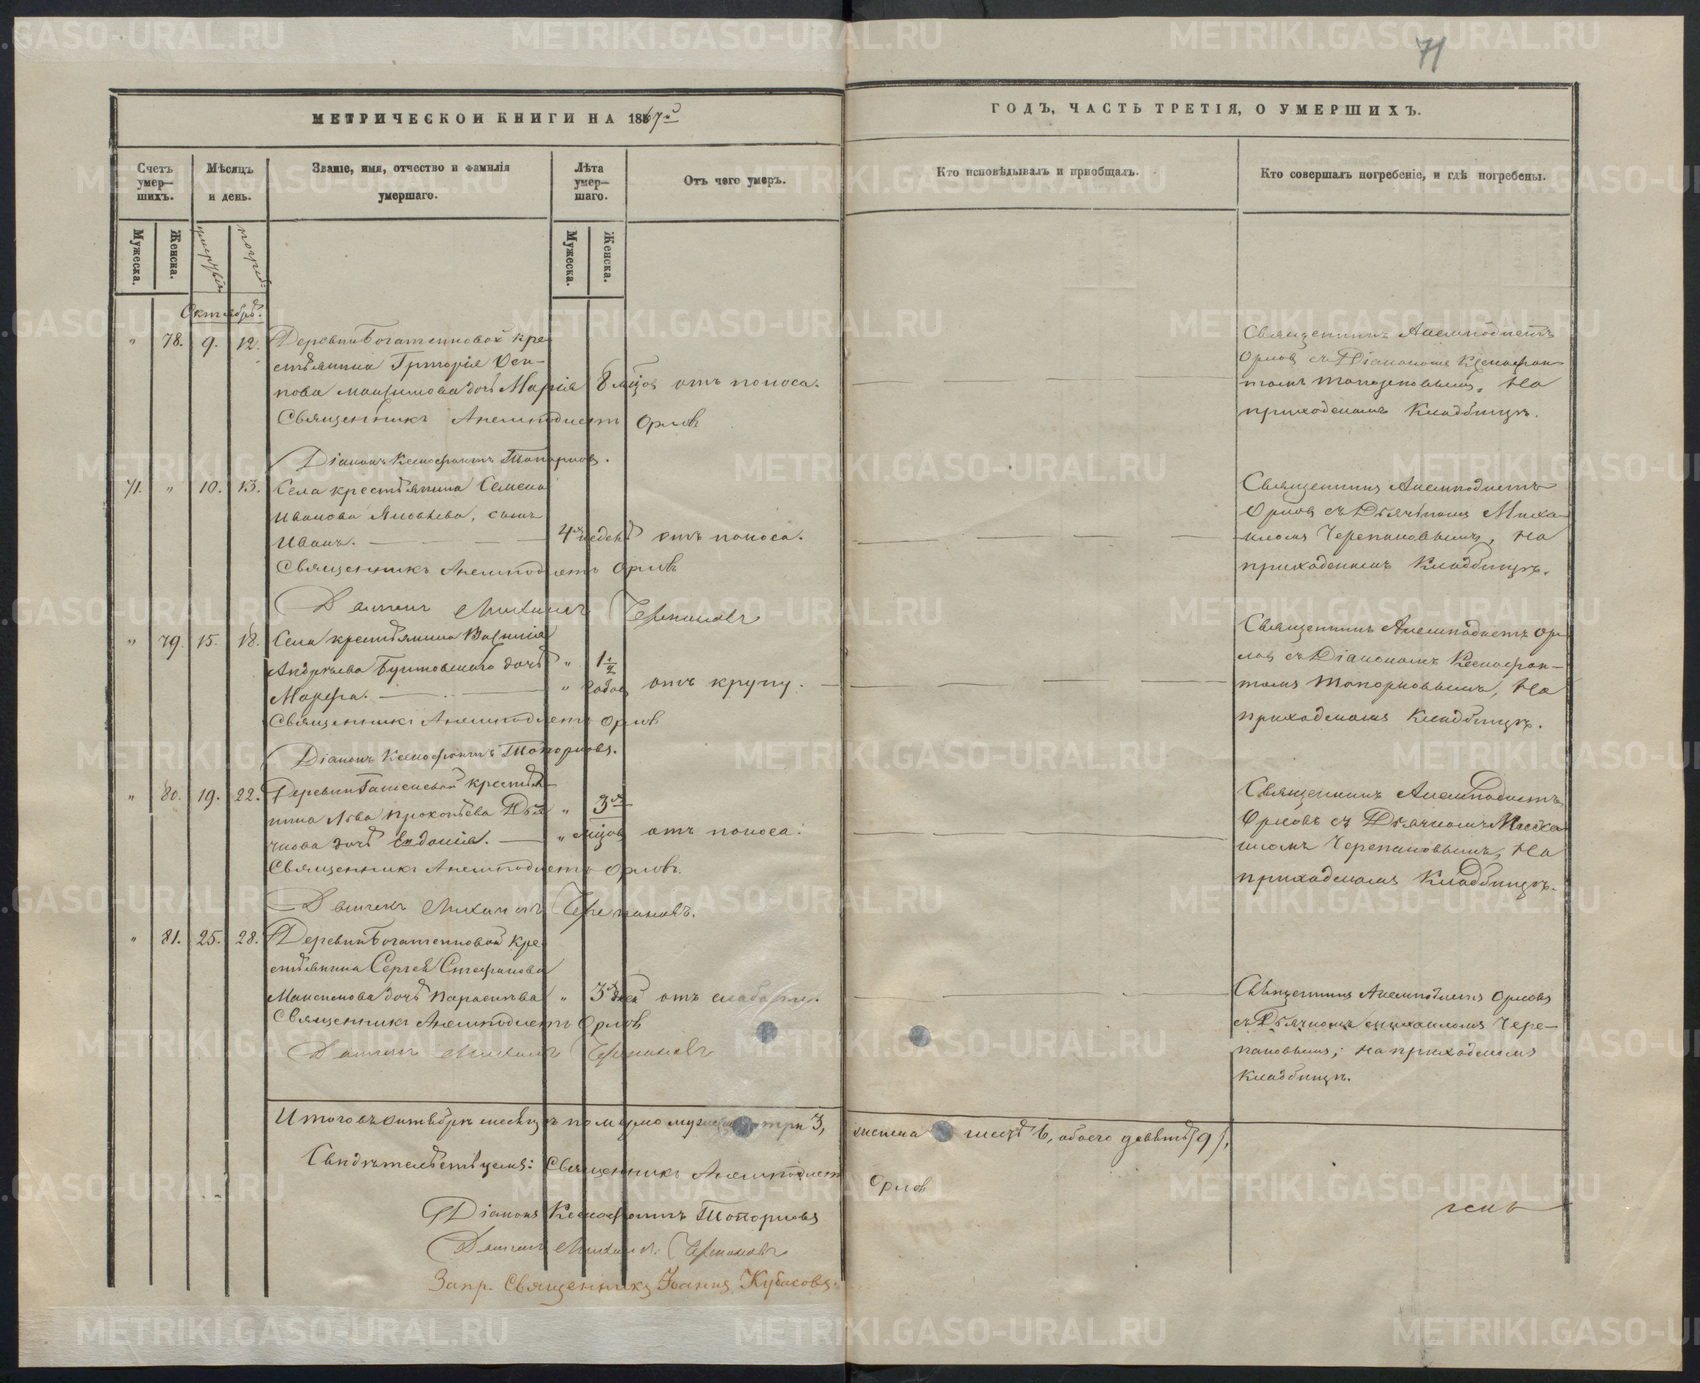 71
МЕТРИЧЕСКОЙ КНИГИ НА 1867й
ГОДЪ, ЧАСТЬ ТРЕТІЯ, О УМЕРШИХЪ.
Счетъ умер— шихъ.
Мѣсяцъ и день.
Званіе, имя, отчество и фамилія умершаго.
Лѣта умер— шаго.
Отъ чего умеръ.
Кто исповѣдывалъ и пріобщалъ.
Кто совершалъ погребеніе, и гдѣ погребены.
Мужеска.
Женска.
Мужеска.
Женска.
Октябрь.
" 78. 9. 12. Деревни Богатенковой кре
стьянина Григорія Оси-
пова Максимова дочь Марія 8 мѣсяц отъ поноса.
Священникъ Анемподистъ Орловъ
Діаконъ Ксенофонтъ Топорковъ.
Священникъ Анемподистъ
Орловъ съ Діакономъ Ксенофон
томъ Топорковымъ, на
приходскомъ кладбищѣ.
71. " 10. 13. Села крестьянина Семена
Иванова Яковлева, сынъ
Иванъ. 4 недель отъ поноса.
Священникъ Анемподистъ Орловъ
Дьячекъ Михаилъ Черепановъ
Священникъ Анемподистъ
Орловъ съ Дьячкомъ Миха-
иломъ Черепановымъ, на
приходскомъ кладбищѣ.
" 79. 15. 18. Села крестьянина
Андреева дочь " 1 1/2
Марфа. " годов отъ крупу.
Священникъ Анемподистъ Орловъ
Діаконъ Ксенофонтъ Топорковъ.
Священникъ Анемподистъ Ор
ловъ съ Діакономъ Ксенофон-
томъ Топорковымъ, на
приходскомъ кладбищѣ.
" 80. 19. 22. Деревни крестья
нина Льва Прокопьева Дья
чкова дочь Евдокія. " 3х мѣсяц отъ поноса.
Священникъ Анемподистъ Орловъ.
Дьячекъ Михаилъ Черепановъ.
Священникъ Анемподистъ
Орловъ съ Дьячкомъ Миха
иломъ Черепановымъ, на
приходскомъ кладбищѣ.
" 81. 25. 28. Деревни Богатенковой кре
стьянина Сергея Стефанова
Максимова дочь Параскева " 3 дней отъ слабости.
Священникъ Анемподистъ Орловъ
Дьячекъ Михаилъ Черепановъ
Священникъ Анемподистъ Орловъ
съ Дьячкомъ Михаиломъ Чере—
пановымъ, на приходскомъ
кладбищѣ.
Итого въ октябрѣ месяцѣ померло мужеска три 3, женска шесть 6, обоего девять (9).
Свидѣтельствуемъ: Священникъ Анемподистъ Орловъ
Діаконъ Ксенофонтъ Топорковъ
Дьячекъ Михаилъ Черепановъ
Священникъ Іоаннъ Кубасовъ
METRIKI.GASO-URAL.RU